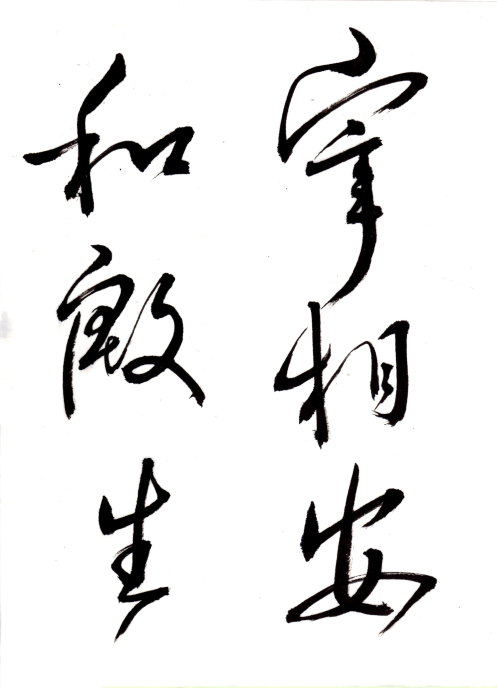 宰相安
和殿生